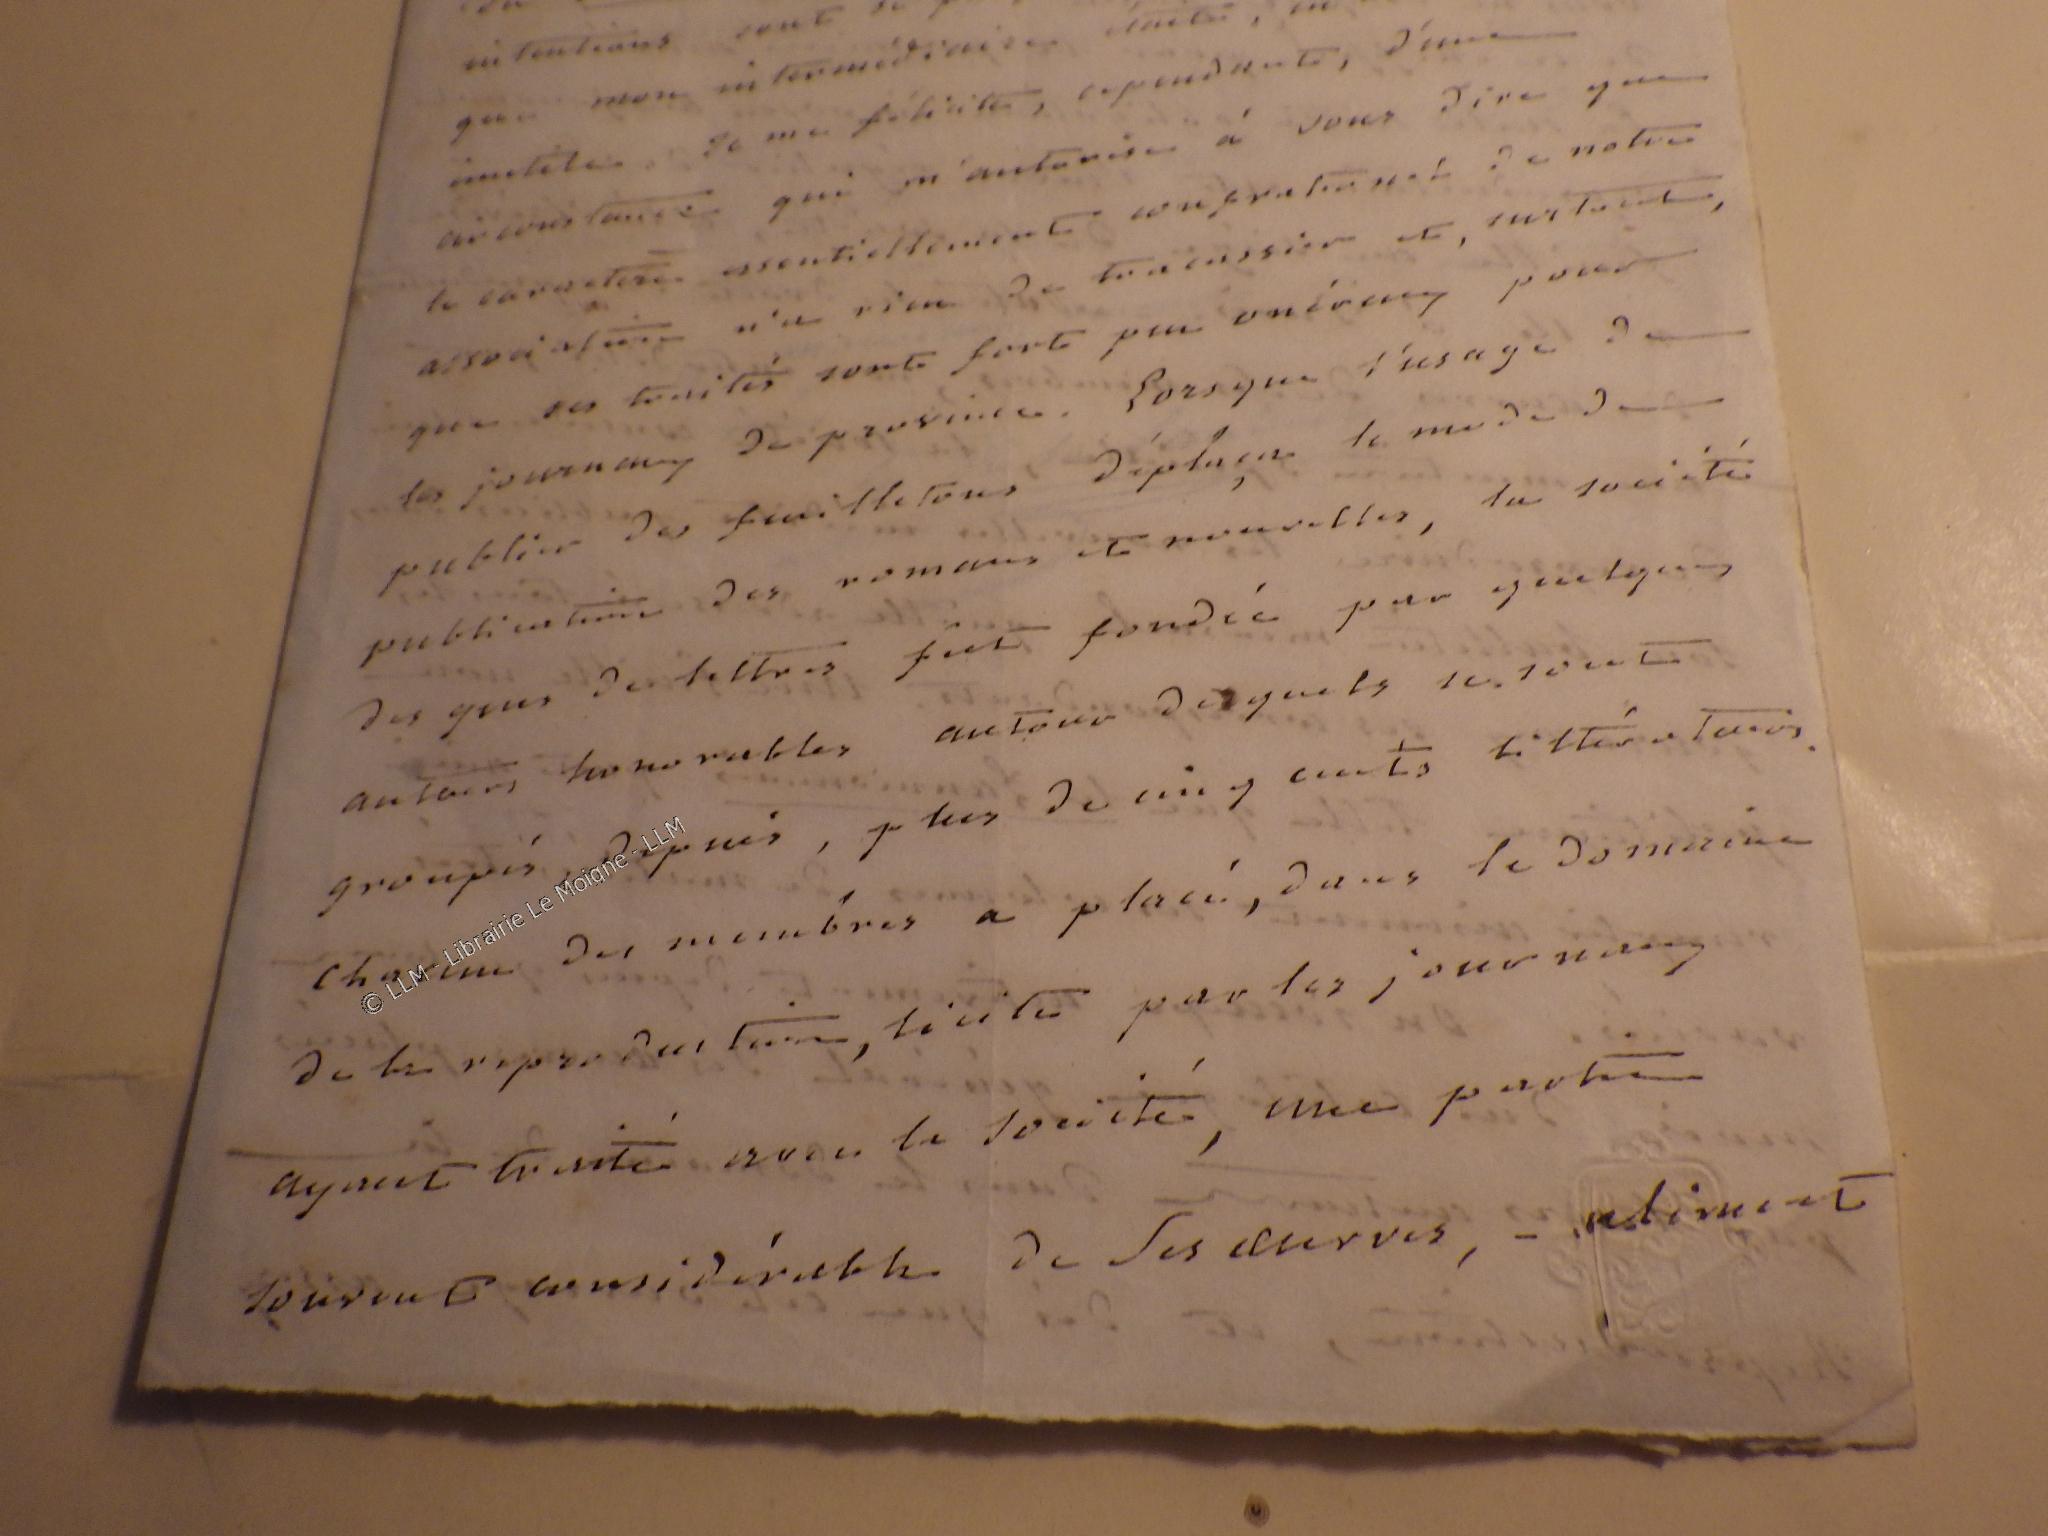 intentions sont
que mon intermédiaire était,
inutile. Je me félicite, cependant, d'une
circonstance qui m'autorise à vous dire que
le caractère essentiellement confraternel de notre
association n'a rien de tracassier et, surtout,
que ses traités sont fort peu onéreux pour
les journaux de province. Lorsque l'usage de
publier des feuilletons déplaça le mode de
publication des romans et nouvelles, la société
des gens de lettres fut fondée par quelques
auteurs honorables autour desquels se sont
groupés, depuis, plus de cinq cents littérateurs.
Chacun des membres a placé, dans le domaine
de la reproduction, licite par les journaux
ayant traité avec la société, une partie
souvent considérable de ses œuvres, - aliment
© LLM - Librairie Le Moigne - LLM